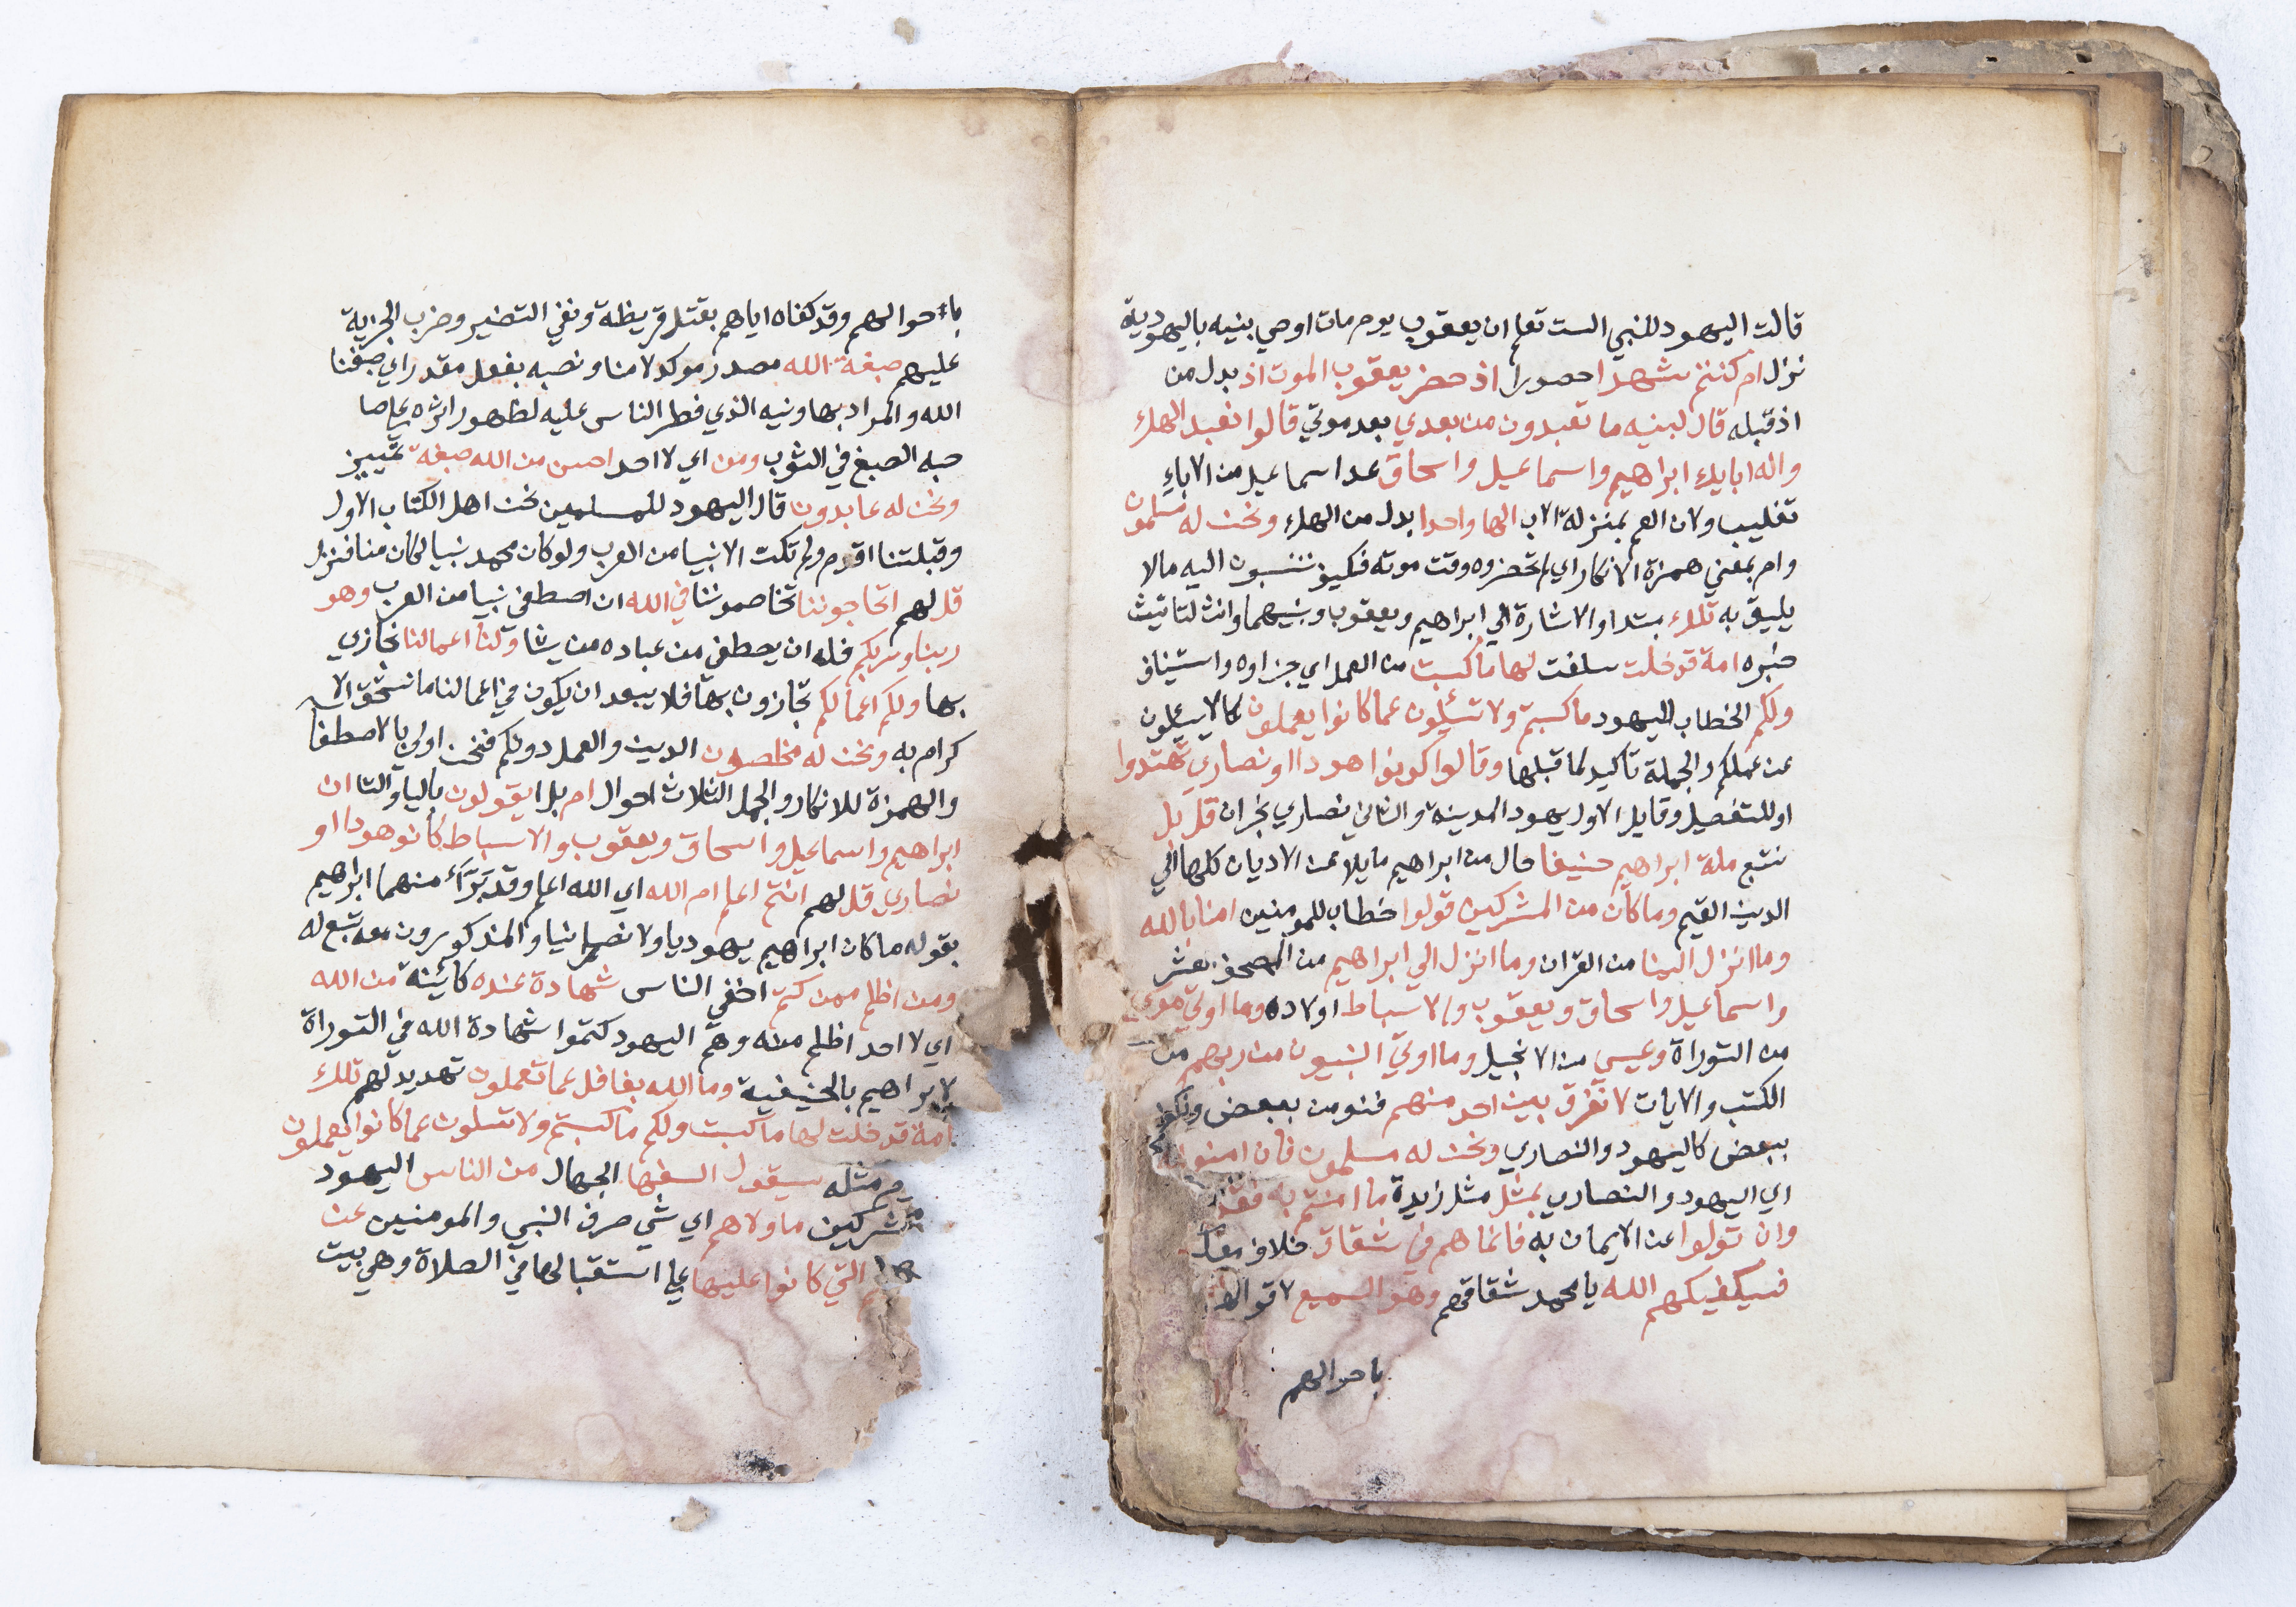 قالت اليهود للنبي الست تعلم ان يعقوب يوم مات اوصي بنيه باليهودية
نزل ام كنتم شهدا حضورا اذ حضر يعقوب الموت اذ بدل من
اذ قبله قال لبنيه ما تعبدون من بعدي بعد موتي قالوا نعبد الهك
واله ابايك ابراهيم واسماعيل واسحاق عد اسماعيل من الاباء
تغليب ولان العم بمنزلة الاب الها واحدا بدل من الهك ونحن له مسلمون
وام بمعني همزة الانكار اي لم تحضروه وقت موته فكيف تنسبون اليه مالا
يليق به تلك مبتدا والاشارة الي ابراهيم ويعقوب وبنيهما وانث لتانيث
خبره امة قد خلت سلفت لها ما كسبت من العمل اي جزاوه واستيناف
ولكم الخطاب لليهود ما كسبتم ولا تسئلون عما كانوا يعملون كما لا يسئلون
عن عملكم والجملة تاكيد لما قبلها وقالوا كونوا هودا او نصاري تهتدوا
او للتفصيل وقايل الاول يهود المدينة والثاني نصاري نجران قل بل
نتبع ملة ابراهيم حنيفا حال من ابراهيم مايلا عن الاديان كلها الي
الدين القيم وما كان من المشركين قولوا خطاب للمومنين امنا بالله
وما انزل الينا من القران وما انزل الي ابراهيم من الصحف العشر
واسماعيل واسحاق ويعقوب والاسباط اولاده وما اوتي موسي
من التوراة وعيسي من الانجيل وما اوتي النبيون من ربهم من
الكتب والايات لا نفرق بين احد منهم فنومن ببعض ونكفر
ببعض كاليهود والنصاري ونحن له مسلمون فان امنوا
اي اليهود والنصاري بمثل مثل زايدة ما امنتم به فقد
وان تولوا عن الايمان به فانما هم في شقاق خلاف معكم
فسيكفيكهم الله يا محمد شقاقهم وهو السميع لاقوالهم
باحوالهم
باحوالهم وقد كفاه اياهم بقتل قريظة ونفي النضير وضرب الجزية
عليهم صبغة الله مصدر موكد لامنا ونصبه بفعل مقدر اي صبغنا
الله والمراد بها دينه الذي فطر الناس عليه لظهور اثره علي صا
حبه الصبغ في الثوب ومن اي لا احد احسن من الله صبغة تمييز
ونحن له عابدون قال اليهود للمسلمين نحن اهل الكتاب الاول
وقبلتنا اقدم ولم تكن الانبيا من العرب ولو كان محمد نبيا لكان منا فنزل
قل لهم اتحاجوننا تخاصموننا في الله ان اصطفي نبيا من العرب وهو
ربنا وربكم فله ان يصطفي من عباده من يشا ولنا اعمالنا نجازي
بها ولكم اعمالكم تجازون بها فلا يبعد ان يكون في اعمالنا ما نستحق الا
كرام به ونحن له مخلصون الدين والعمل دونكم فنحن اولي بالاصطفا
والهمزة للانكار والجمل الثلاث احوال ام بل ايقولون باليا والتا ان
ابراهيم واسماعيل واسحاق ويعقوب والاسباط كانو هودا او
نصاري قل لهم اانتم اعلم ام الله اي الله اعلم وقد برّاَء منهما ابراهيم
بقوله ما كان ابراهيم يهوديا ولا نصرانيا والمذكورون معه تبع له
ومن اظلم ممن كتم اخفي الناس شهادة عنده كائينة من الله
اي لا احد اظلم منه وهم اليهود كتموا شهادة الله في التوراة
لابراهيم بالحنيفية وما الله بغافل عما تعملون تهديد لهم تلك
امة قد خلت لها ما كسبت ولكم ما كسبتم ولا تسلون عما كانوا يعملون
مثله سيقول السفها الجهال من الناس اليهود
مشركين ما ولاهم اي شي صرف النبي والمومنين عن
التي كانوا عليها علي استقبالها في الصلاة وهي بيت